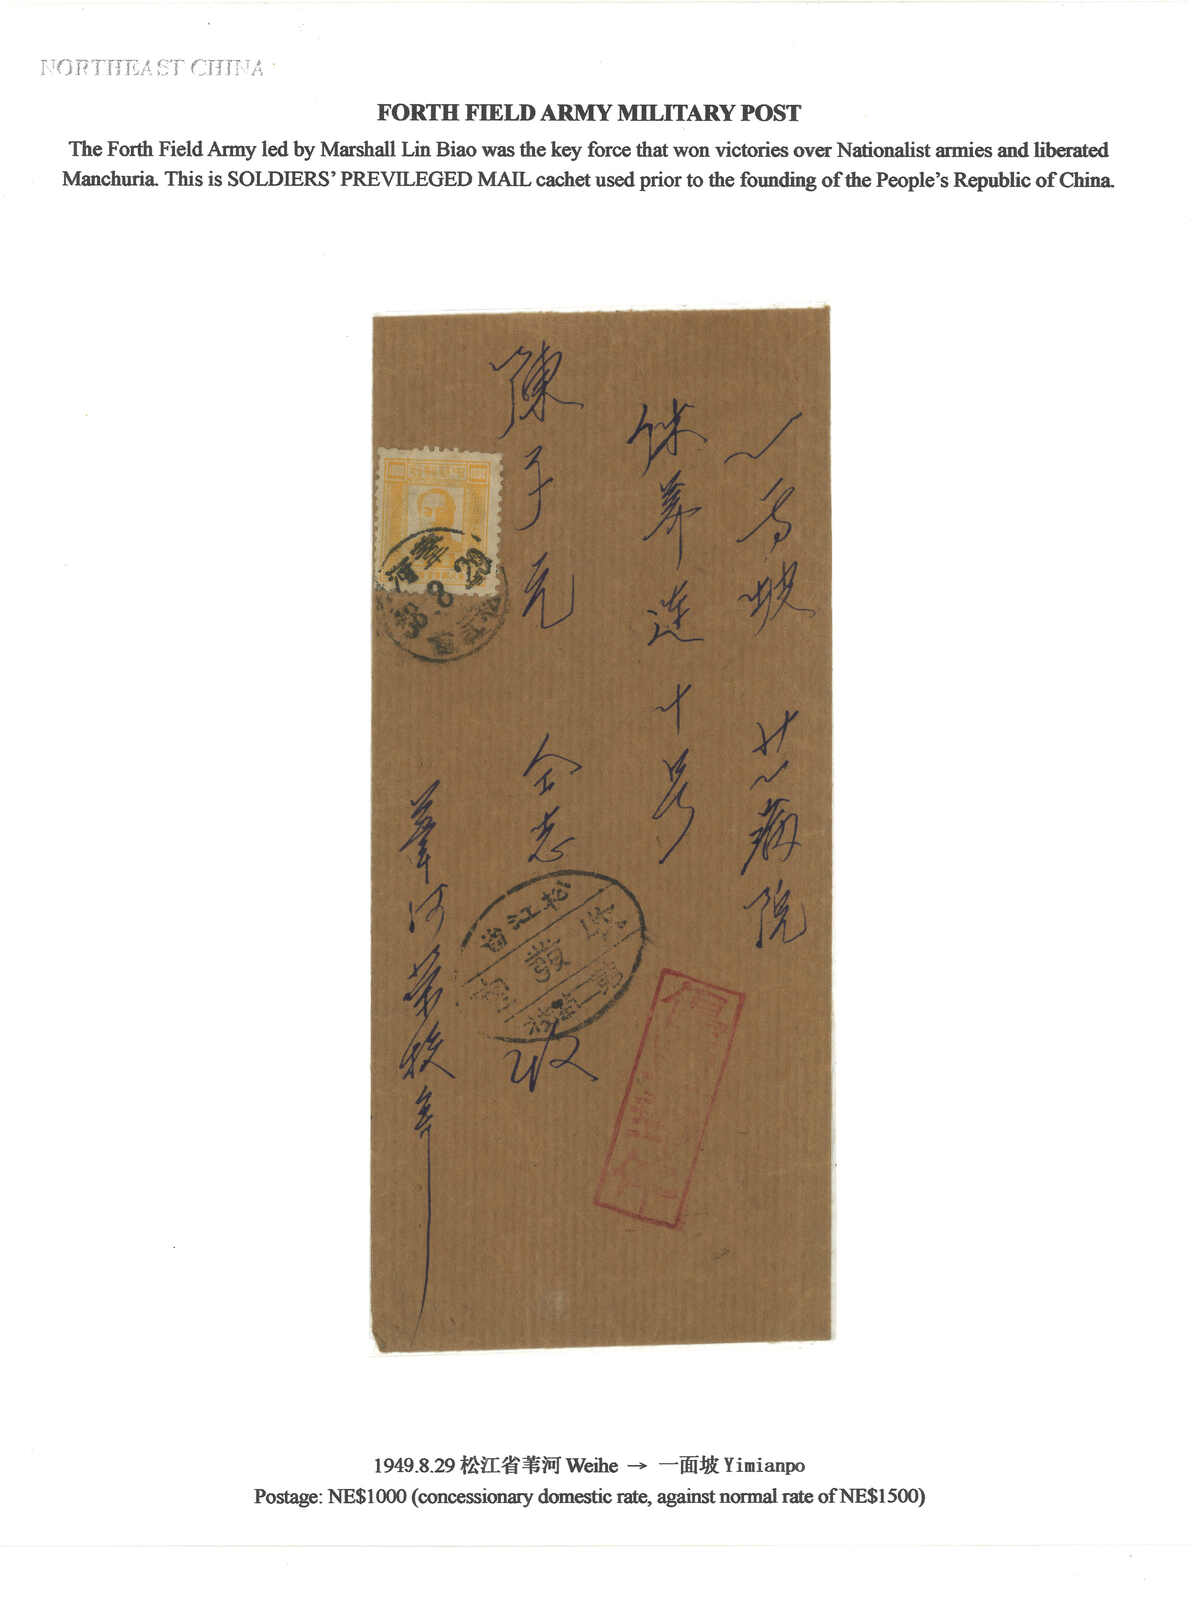 NORTHEAST CHINA
FORTH FIELD ARMY MILITARY POST
The Forth Field Army led by Marshall Lin Biao was the key force that won victories over Nationalist armies and liberated
Manchuria. This is SOLDIERS’ PREVILEGED MAIL cachet used prior to the founding of the People’s Republic of China.
一面坡 廿一病院
休养连十号
陳子元 仝志 收
葦河
葦河
38.8.29
松江省
1949.8.29 松江省苇河 Weihe → 一面坡 Yimianpo
Postage: NE$1000 (concessionary domestic rate, against normal rate of NE$1500)